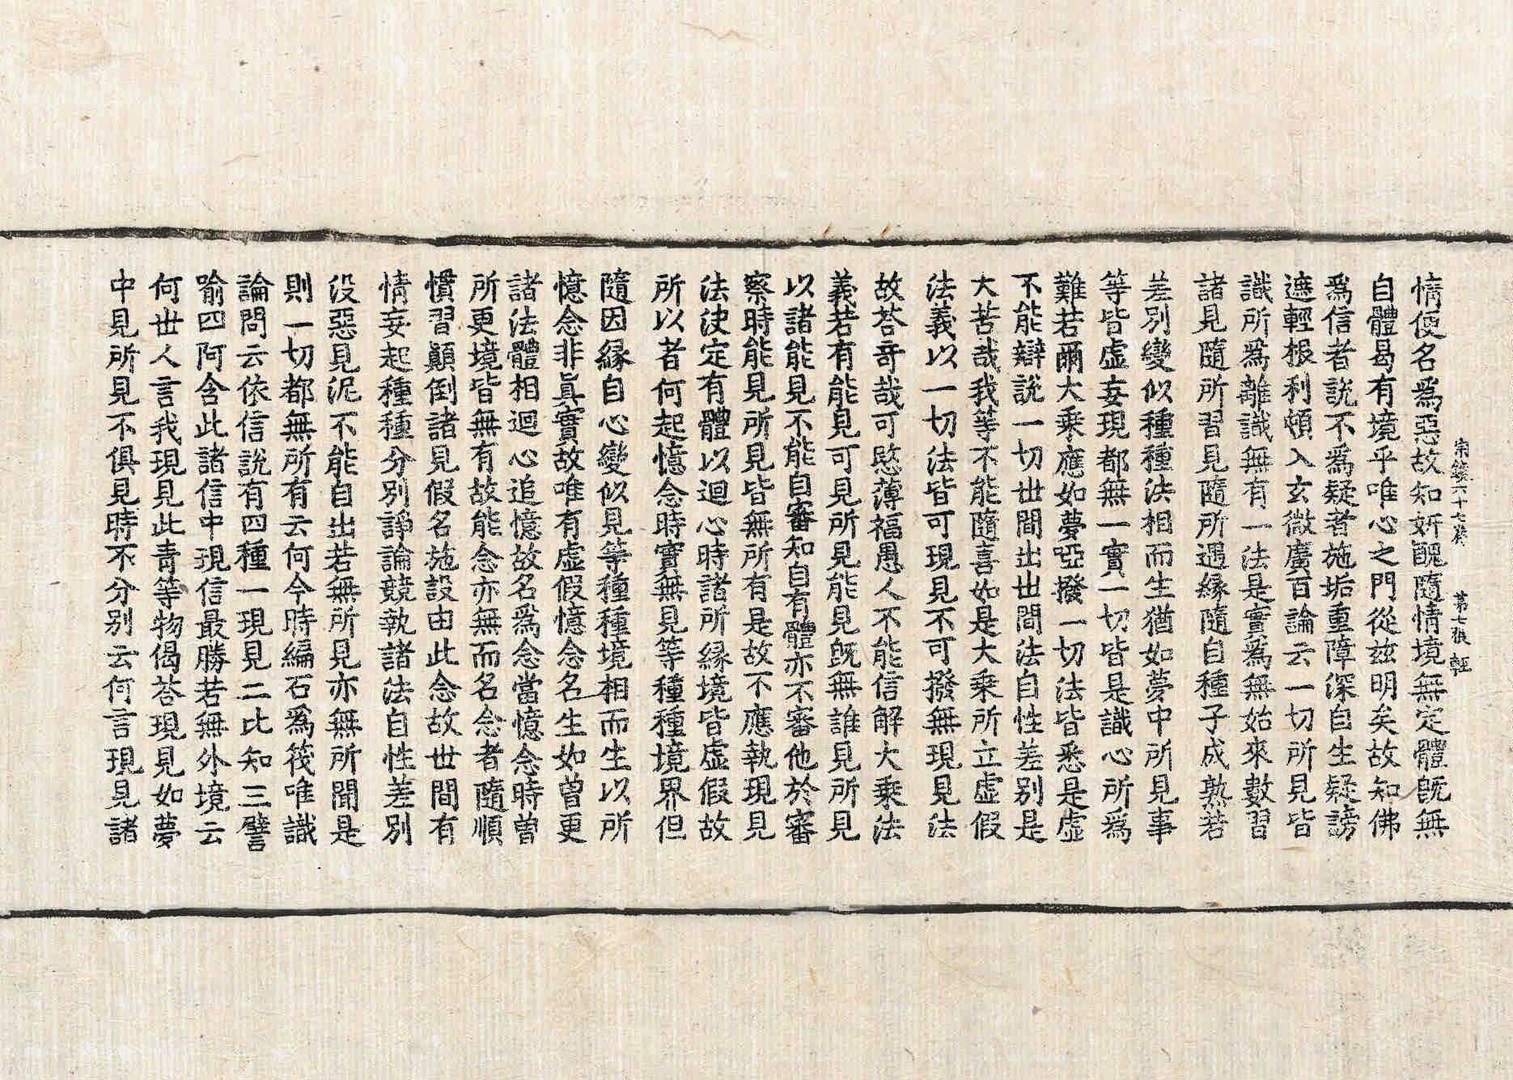 宗鏡六十七卷　第七張　輕
情便名爲惡故知妍醜隨情境無定體旣無
自體曷有境乎唯心之門從玆明矣故知佛
爲信者說不爲疑者施垢重障深自生疑謗
遮輕根利頓入玄微廣百論云一切所見皆
識所爲離識無有一法是實爲無始來數習
諸見隨所習見隨所遇緣隨自種子成熟若
差別變似種種法相而生猶如夢中所見事
等皆虛妄現都無一實一切皆是識心所爲
難若爾大乘應如夢啞撥一切法皆悉是虛
不能辯說一切世間出出間法自性差別是
大苦哉我等不能隨喜如是大乘所立虛假
法義以一切法皆可現見不可撥無現見法
故荅奇哉可愍薄福愚人不能信解大乘法
義若有能見可見所見能見旣無誰見所見
以諸能見不能自審知自有體亦不審他於審
察時能見所見皆無所有是故不應執現見
法決定有體以迴心時諸所緣境皆虛假故
所以者何起憶念時實無見等種種境界但
隨因緣自心變似見等種種境相而生以所
憶念非眞實故唯有虛假憶念名生如曾更
諸法體相迴心追憶故名爲念當憶念時曾
所更境皆無有故能念亦無而名念者隨順
慣習顚倒諸見假名施設由此念故世間有
情妄起種種分別諍論競執諸法自性差別
沒惡見泥不能自出若無所見亦無所聞是
則一切都無所有云何今時編石爲筏唯識
論問云依信說有四種一現見二比知三譬
喻四阿含此諸信中現信最勝若無外境云
何世人言我現見此靑等物偈荅現見如夢
中見所見不俱見時不分別云何言現見諸